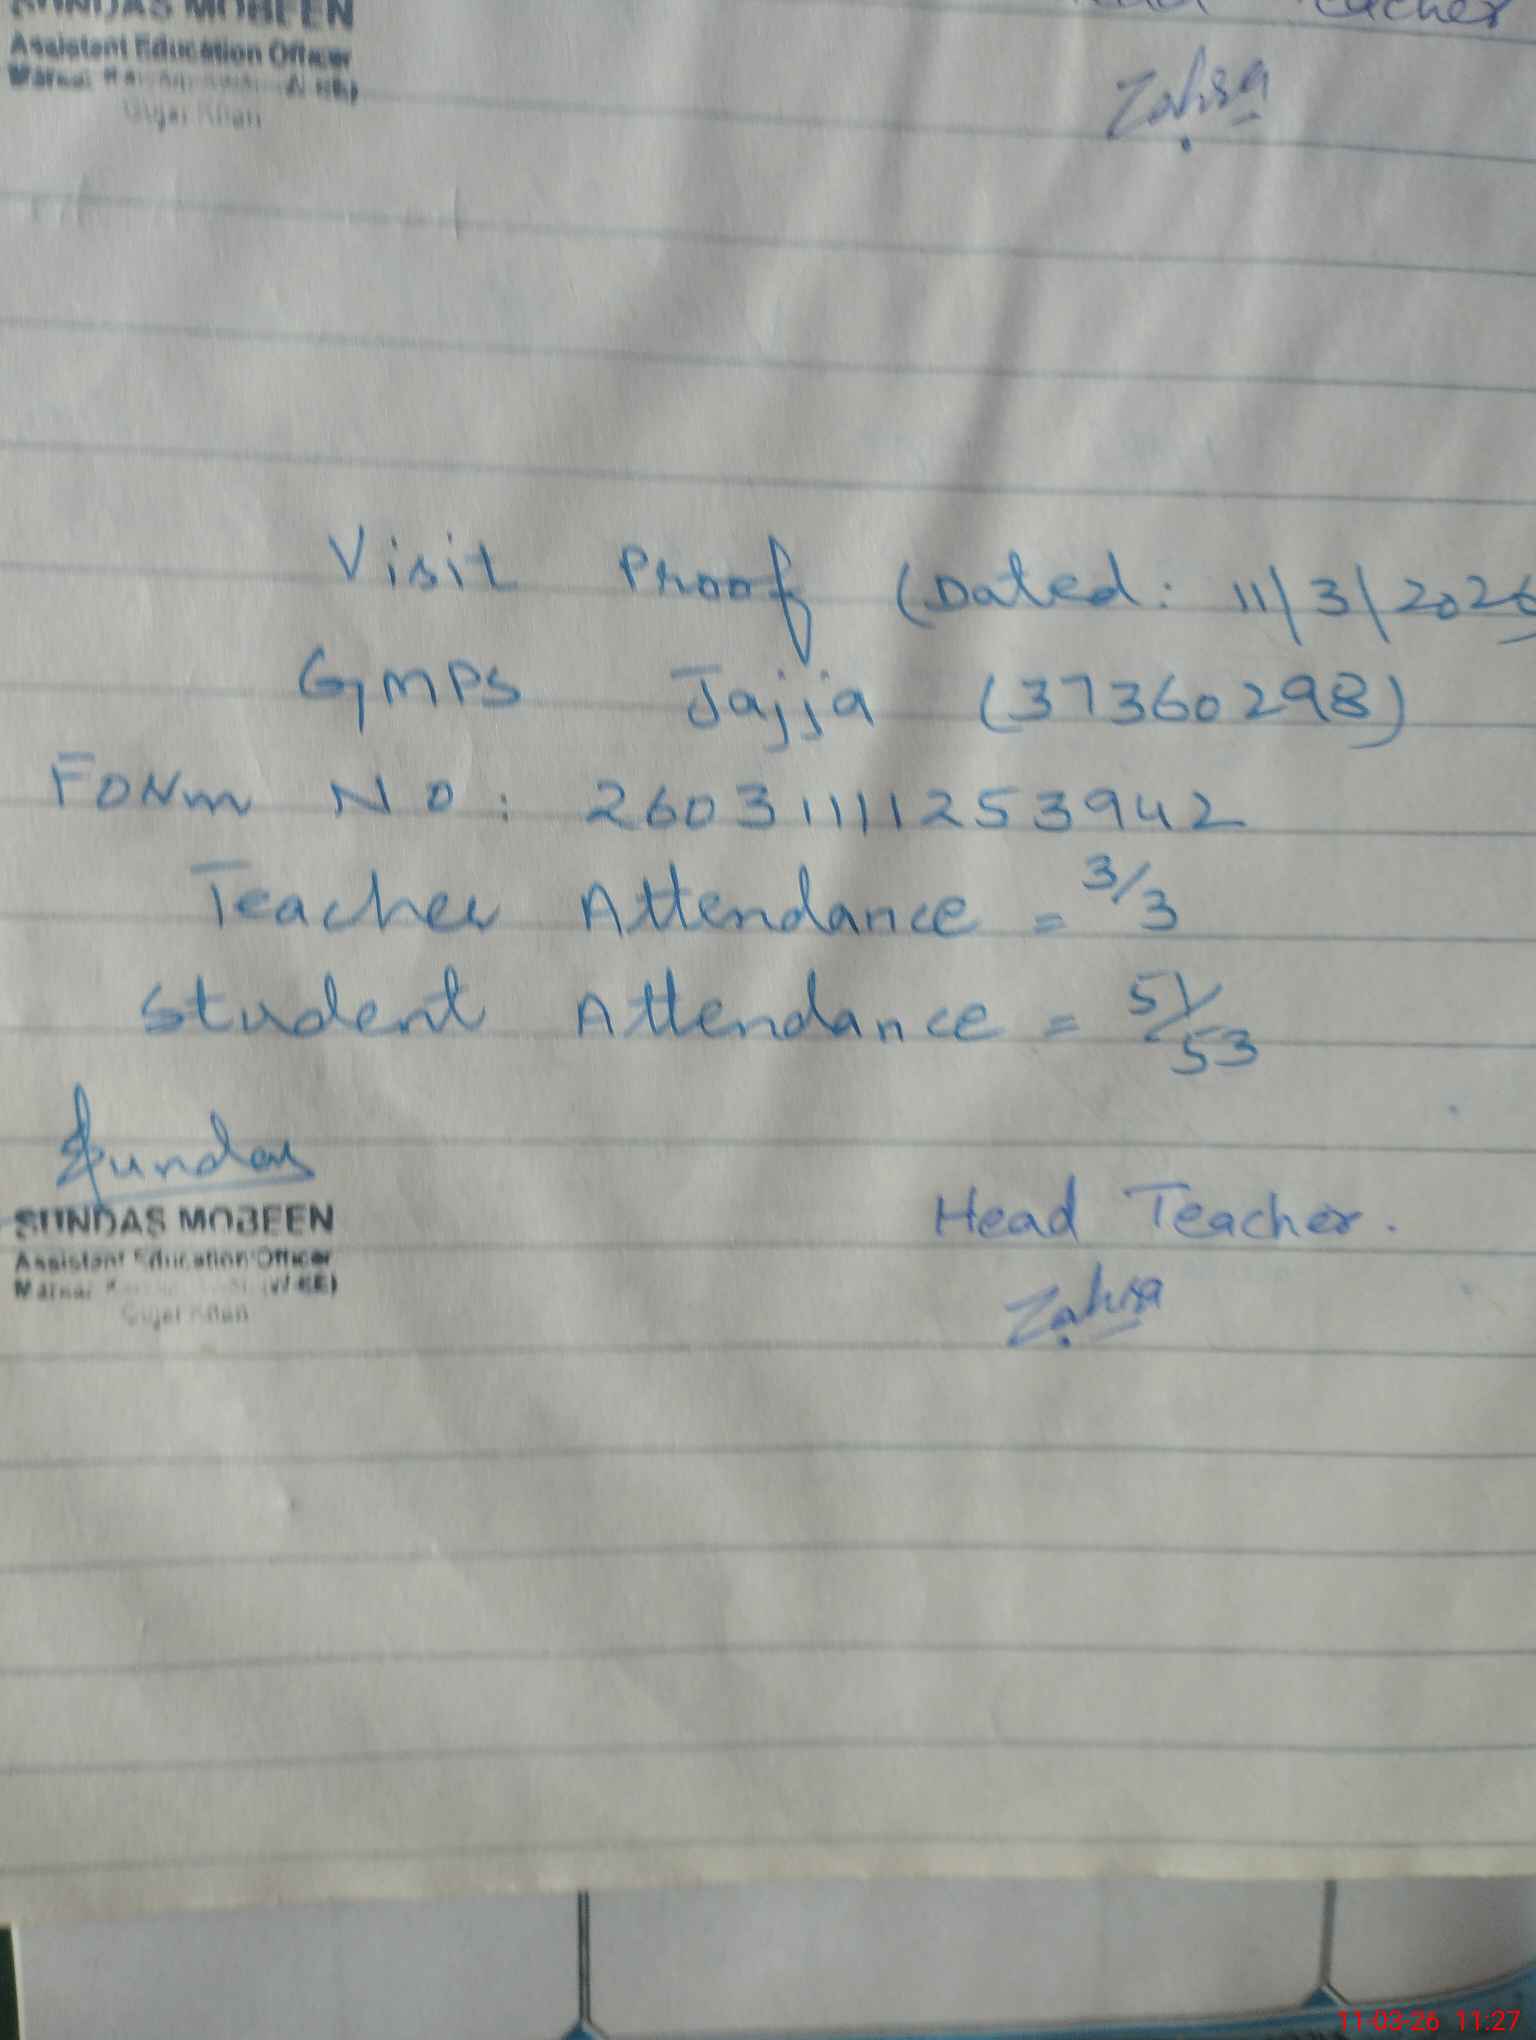 SUNDAS MOBEEN
Teacher
Assistant Education Officer
Gujar Khan
Zahra
Visit Proof (Dated: 11/3/2026)
GMPS Jajja (37360298)
Form No: 260311111253942
Teacher Attendance = 3/3
Student Attendance = 51/53
Sundas
SUNDAS MOBEEN
Assistant Education Officer
Gujar Khan
Head Teacher.
Zahra
11-03-26 11:27